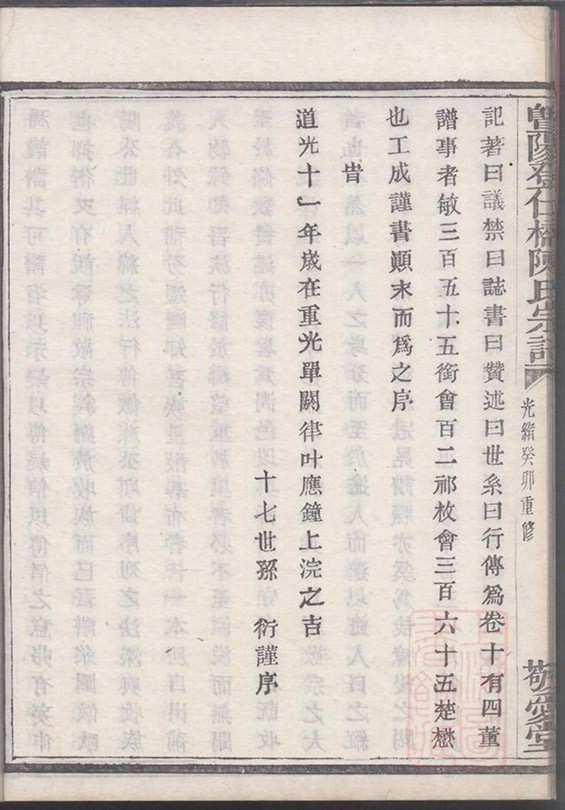 曁陽登仁橋陳氏宗譜
光緒癸卯重修
敬愛堂
記著曰議禁曰誌書曰贊述曰世系曰行傳爲卷十有四董
譜事者敏三百五十五銜會百二祁枚會三百六十五楚懋
也工成謹書顚末而爲之序
旹
道光十一年歲在重光單閼律叶應鐘上浣之吉
十七世孫 衍謹序